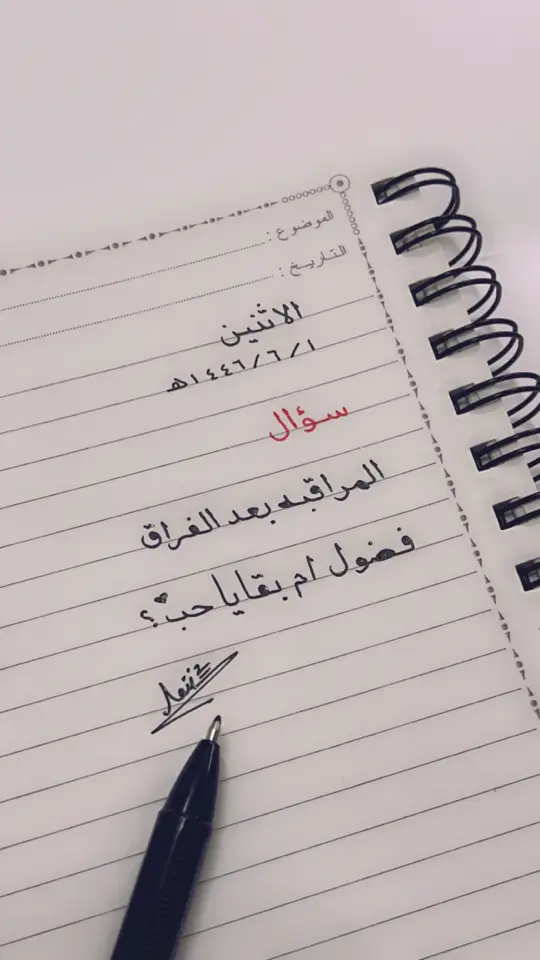 الموضوع :
التاريخ :
الاثنين
١ / ٦ / ١٤٤٦هـ
سؤال
المراقبه بعد الفراق
فضول ام بقايا حب ؟